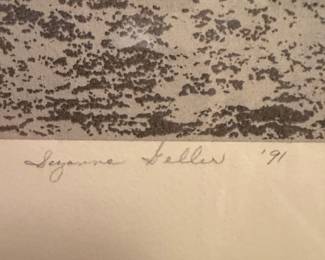 Suzanne Geller '91